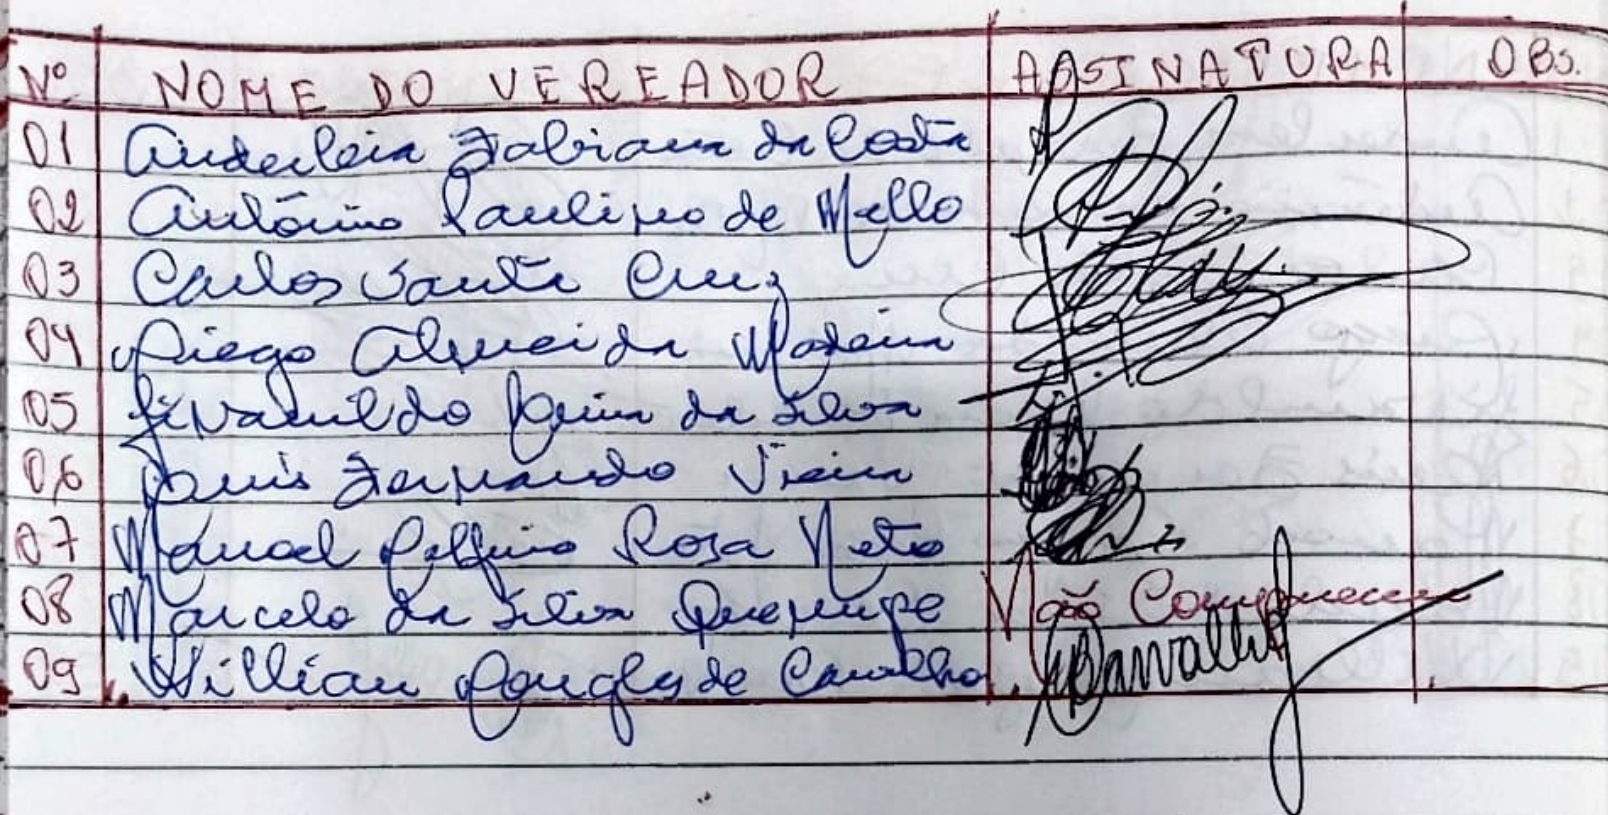 Nº NOME DO VEREADOR ASSINATURA OBS.
01 Anderleia Fabiana da Costa
02 Antônio Paulino de Mello
03 Carlos Santa Cruz
04 Diego Almeida Madeira
05 Jivanildo da Silva
06 Luis Fernando Vieira
07 Manoel Rosa Neto
08 Marcelo da Silva Não Compareceu
09 Willian Douglas de Carvalho